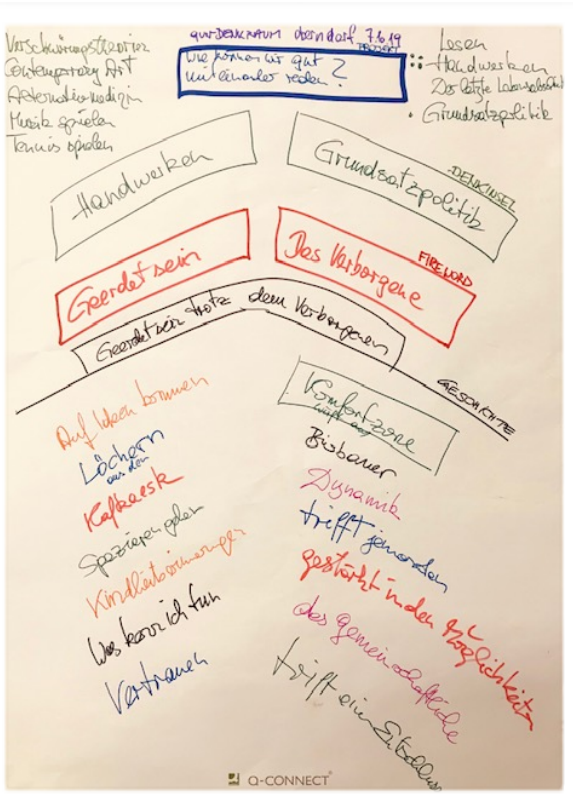 DENKRAUM oberndorf 7.6.19
PROJEKT
Wie können wir gut
miteinander reden?
Verschwörungstheorien
Contemporary Art
Alternativmedizin
Musik spielen
Tennis spielen
Lesen
Handwerken
Der letzte
Grundsatzpolitik
Handwerken
Grundsatzpolitik
DENKINSEL
Geerdet sein
Das Verborgene
FIREWORD
Geerdet sein trotz dem Verborgenen
GESCHICHTE
Auf Ideen kommen
Löchern
aus den
Kafkaesk
Spazieren gehen
Kindheitserinnerungen
Was kann ich tun
Vertrauen
Komfortzone
Dynamik
trifft jemanden
gestärkt in den Möglichkeiten
das gemeinschaftliche
trifft ein Entschluss
Q-CONNECT